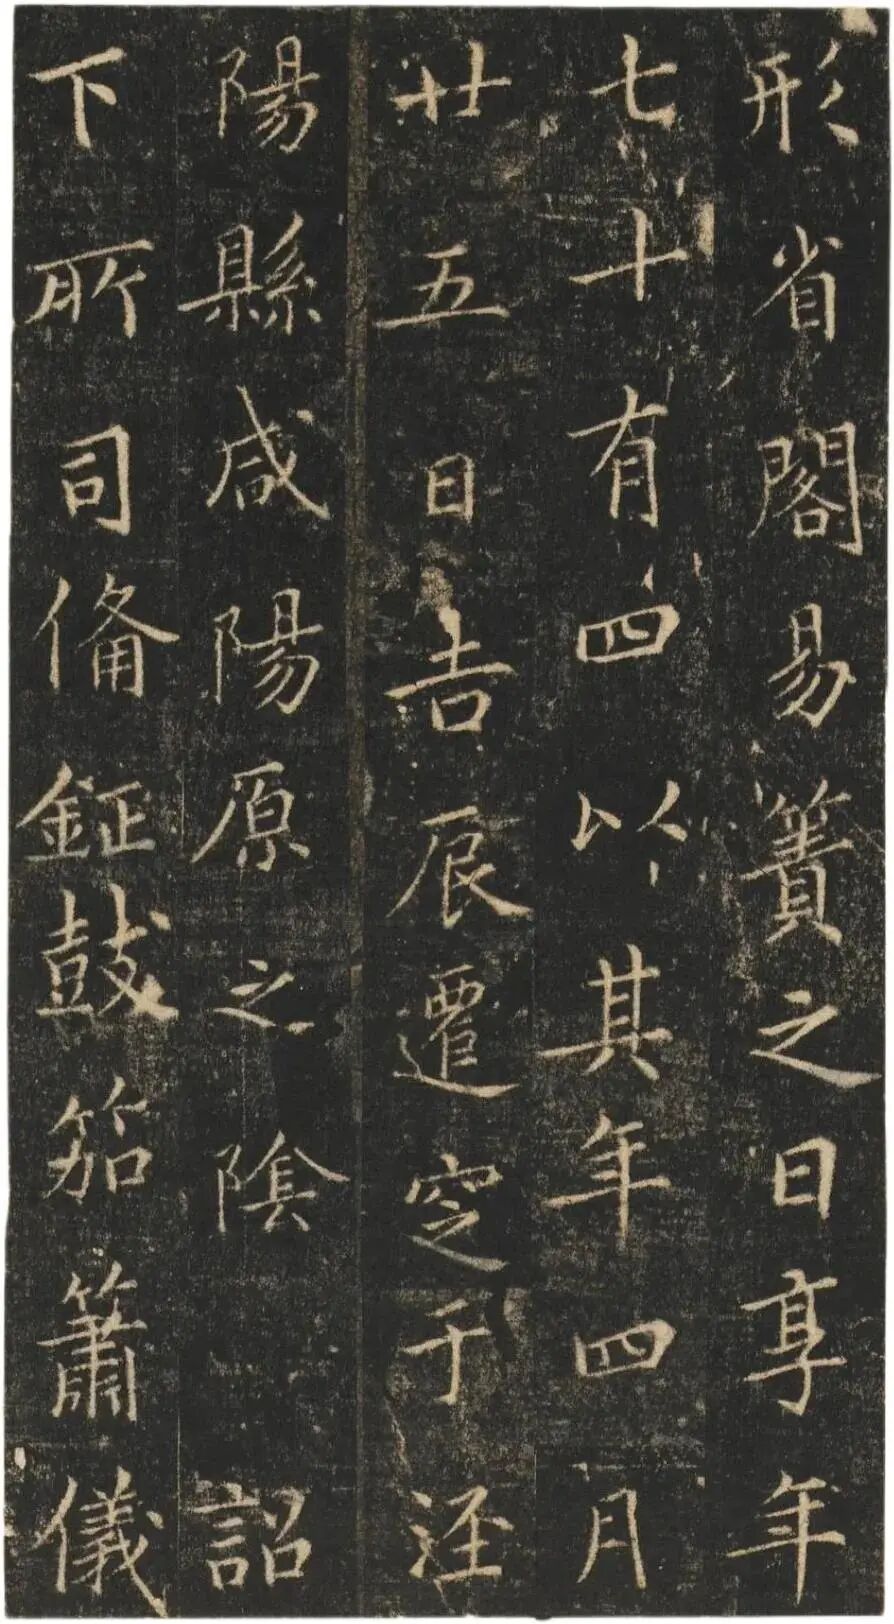 形省閣易簀之日享年
七十有四以其年四月
廿五日吉辰遷窆于涇
陽縣咸陽原之陰詔
下所司俻鉦鼓笳簫儀